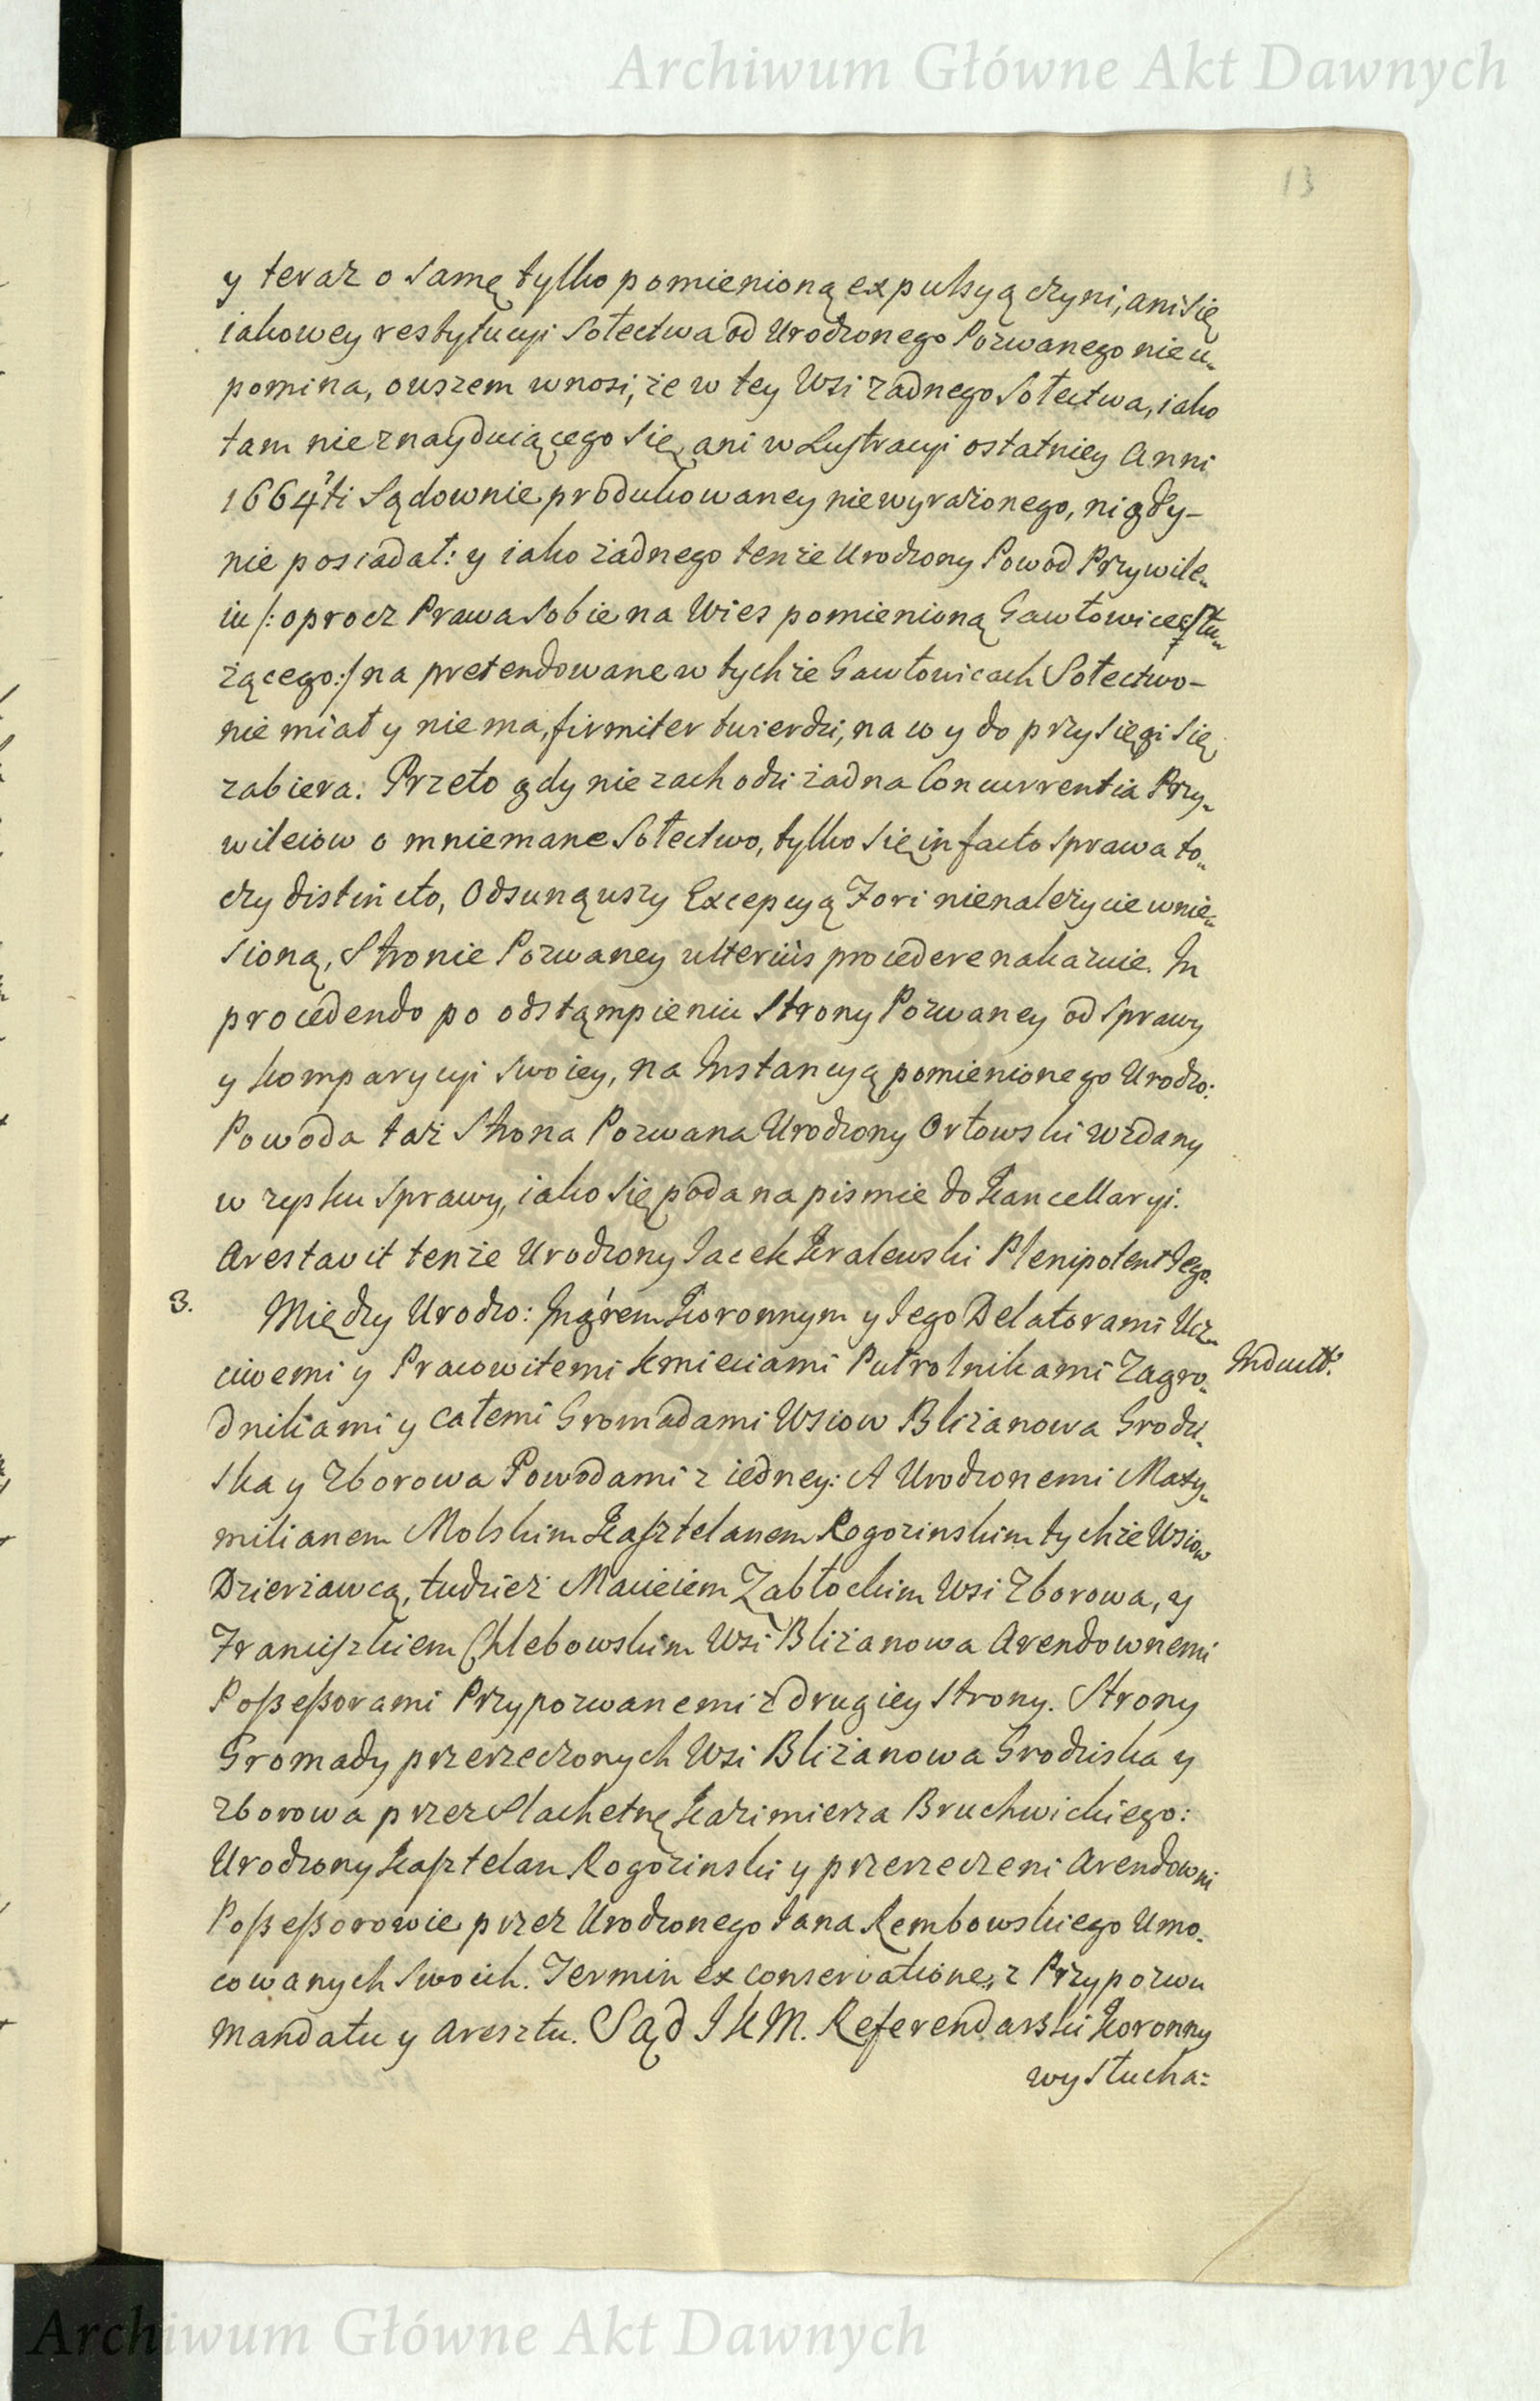 Archiwum Główne Akt Dawnych
13
y teraz o samę tylko pomienioną expulsyą czyni, ani się
iakowey restytucyi Sołectwa od Urodzonego Pozwanego nie u„
pomina, owszem wnosi, że w tey Wsi żadnego Sołectwa, iako
tam nieznayduiącego się, ani w Lustracyi ostatniey Anni
1664ti Sądownie produkowaney niewyrażonego, nigdy–
nie posiadał: y iako żadnego tenże Urodzony Powod Przywile„
iu /: oprocz Prawa sobie na Wies pomienioną Gawłowice słu„
żącego:/ na pretendowane w tychże Gawłowicach Sołectwo–
nie miał y nie ma, firmiter twierdzi, na w y do przysięgi się
zabiera. Przeto gdy nie zachodzi żadna Concurrentia Przy„
wileiow o mniemane Sołectwo, tylko się in facto sprawa to„
czy distincto, Odsunąwszy Excepcyą Fori nienależycie wnie„
sioną, Stronie Pozwaney ulteriùs procedere nakazuie. In
procedendo po odstąmpieniu Strony Pozwaney od sprawy
y komparycyi swoiey, na Instancyą pomienionego Urodzo:
Powoda taż Strona Pozwana Urodzony Orłowski wzdany
w zysku sprawy, iako się poda na pismie do Kancellaryi.
Arestavit tenże Urodzony Jacek Kralewski Plenipotent Jego.
3. Między Urodzo: Ingrem Koronnym y Jego Delatorami Ucz„
ciwemi y Pracowitemi Kmieciami Pułrolnikami Zagro„
Induct:
dnikami y całemi Gromadami Wsiow Bliżanowa Grodzi„
ska y Zborowa Powodami z iedney: A Urodzonemi Maxy„
milianem Molskim Kasztelanem Rogozinskim tychże Wsiow
Dzierżawcą, tudzież Macieiem Zabłockim Wsi Zborowa, y
Franciszkiem Chlebowskim Wsi Bliżanowa Arendownemi
Poßeßorami Przypozwanemi z drugiey strony. Strony
Gromady przerzeczonych Wsi Bliżanowa Grodziska y
Zborowa przez Slachetnę Kazimierza Bruchwickiego:
Urodzony Kasztelan Rogozinski y przerzeczeni Arendowni
Poßeßorowie przez Urodzonego Jana Rembowskiego Umo„
cowanych swoich. Termin ex conservatione, z Przypozwu
Mandatu y Aresztu. Sąd JKM. Referendarski Koronny
wysłucha:
Archiwum Główne Akt Dawnych